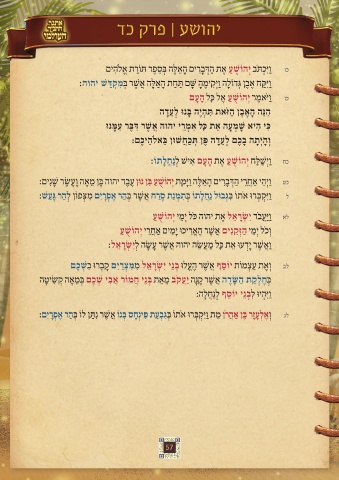 יהושע | פרק כד
כו וַיִּכְתֹּב יְהוֹשֻׁעַ אֶת הַדְּבָרִים הָאֵלֶּה בְּסֵפֶר תּוֹרַת אֱלֹהִים
וַיִּקַּח אֶבֶן גְּדוֹלָה וַיְקִימֶהָ שָּׁם תַּחַת הָאַלָּה אֲשֶׁר בְּמִקְדַּשׁ יהוה:
כז וַיֹּאמֶר יְהוֹשֻׁעַ אֶל כָּל הָעָם
הִנֵּה הָאֶבֶן הַזֹּאת תִּהְיֶה בָּנוּ לְעֵדָה
כִּי הִיא שָׁמְעָה אֵת כָּל אִמְרֵי יהוה אֲשֶׁר דִּבֶּר עִמָּנוּ
וְהָיְתָה בָכֶם לְעֵדָה פֶּן תְּכַחֲשׁוּן בֵּאלֹהֵיכֶם:
כח וַיְשַׁלַּח יְהוֹשֻׁעַ אֶת הָעָם אִישׁ לְנַחֲלָתוֹ:
כט וַיְהִי אַחֲרֵי הַדְּבָרִים הָאֵלֶּה וַיָּמָת יְהוֹשֻׁעַ בִּן נוּן עֶבֶד יהוה בֶּן מֵאָה וָעֶשֶׂר שָׁנִים:
ל וַיִּקְבְּרוּ אֹתוֹ בִּגְבוּל נַחֲלָתוֹ בְּתִמְנַת סֶרַח אֲשֶׁר בְּהַר אֶפְרָיִם מִצְּפוֹן לְהַר גָּעַשׁ:
לא וַיַּעֲבֹד יִשְׂרָאֵל אֶת יהוה כֹּל יְמֵי יְהוֹשֻׁעַ
וְכֹל יְמֵי הַזְּקֵנִים אֲשֶׁר הֶאֱרִיכוּ יָמִים אַחֲרֵי יְהוֹשֻׁעַ
וַאֲשֶׁר יָדְעוּ אֵת כָּל מַעֲשֵׂה יהוה אֲשֶׁר עָשָׂה לְיִשְׂרָאֵל:
לב וְאֶת עַצְמוֹת יוֹסֵף אֲשֶׁר הֶעֱלוּ בְנֵי יִשְׂרָאֵל מִמִּצְרַיִם קָבְרוּ בִשְׁכֶם
בְּחֶלְקַת הַשָּׂדֶה אֲשֶׁר קָנָה יַעֲקֹב מֵאֵת בְּנֵי חֲמוֹר אֲבִי שְׁכֶם בְּמֵאָה קְשִׂיטָה
וַיִּהְיוּ לִבְנֵי יוֹסֵף לְנַחֲלָה:
לג וְאֶלְעָזָר בֶּן אַהֲרֹן מֵת וַיִּקְבְּרוּ אֹתוֹ בְּגִבְעַת פִּינְחָס בְּנוֹ אֲשֶׁר נִתַּן לוֹ בְּהַר אֶפְרָיִם:
57